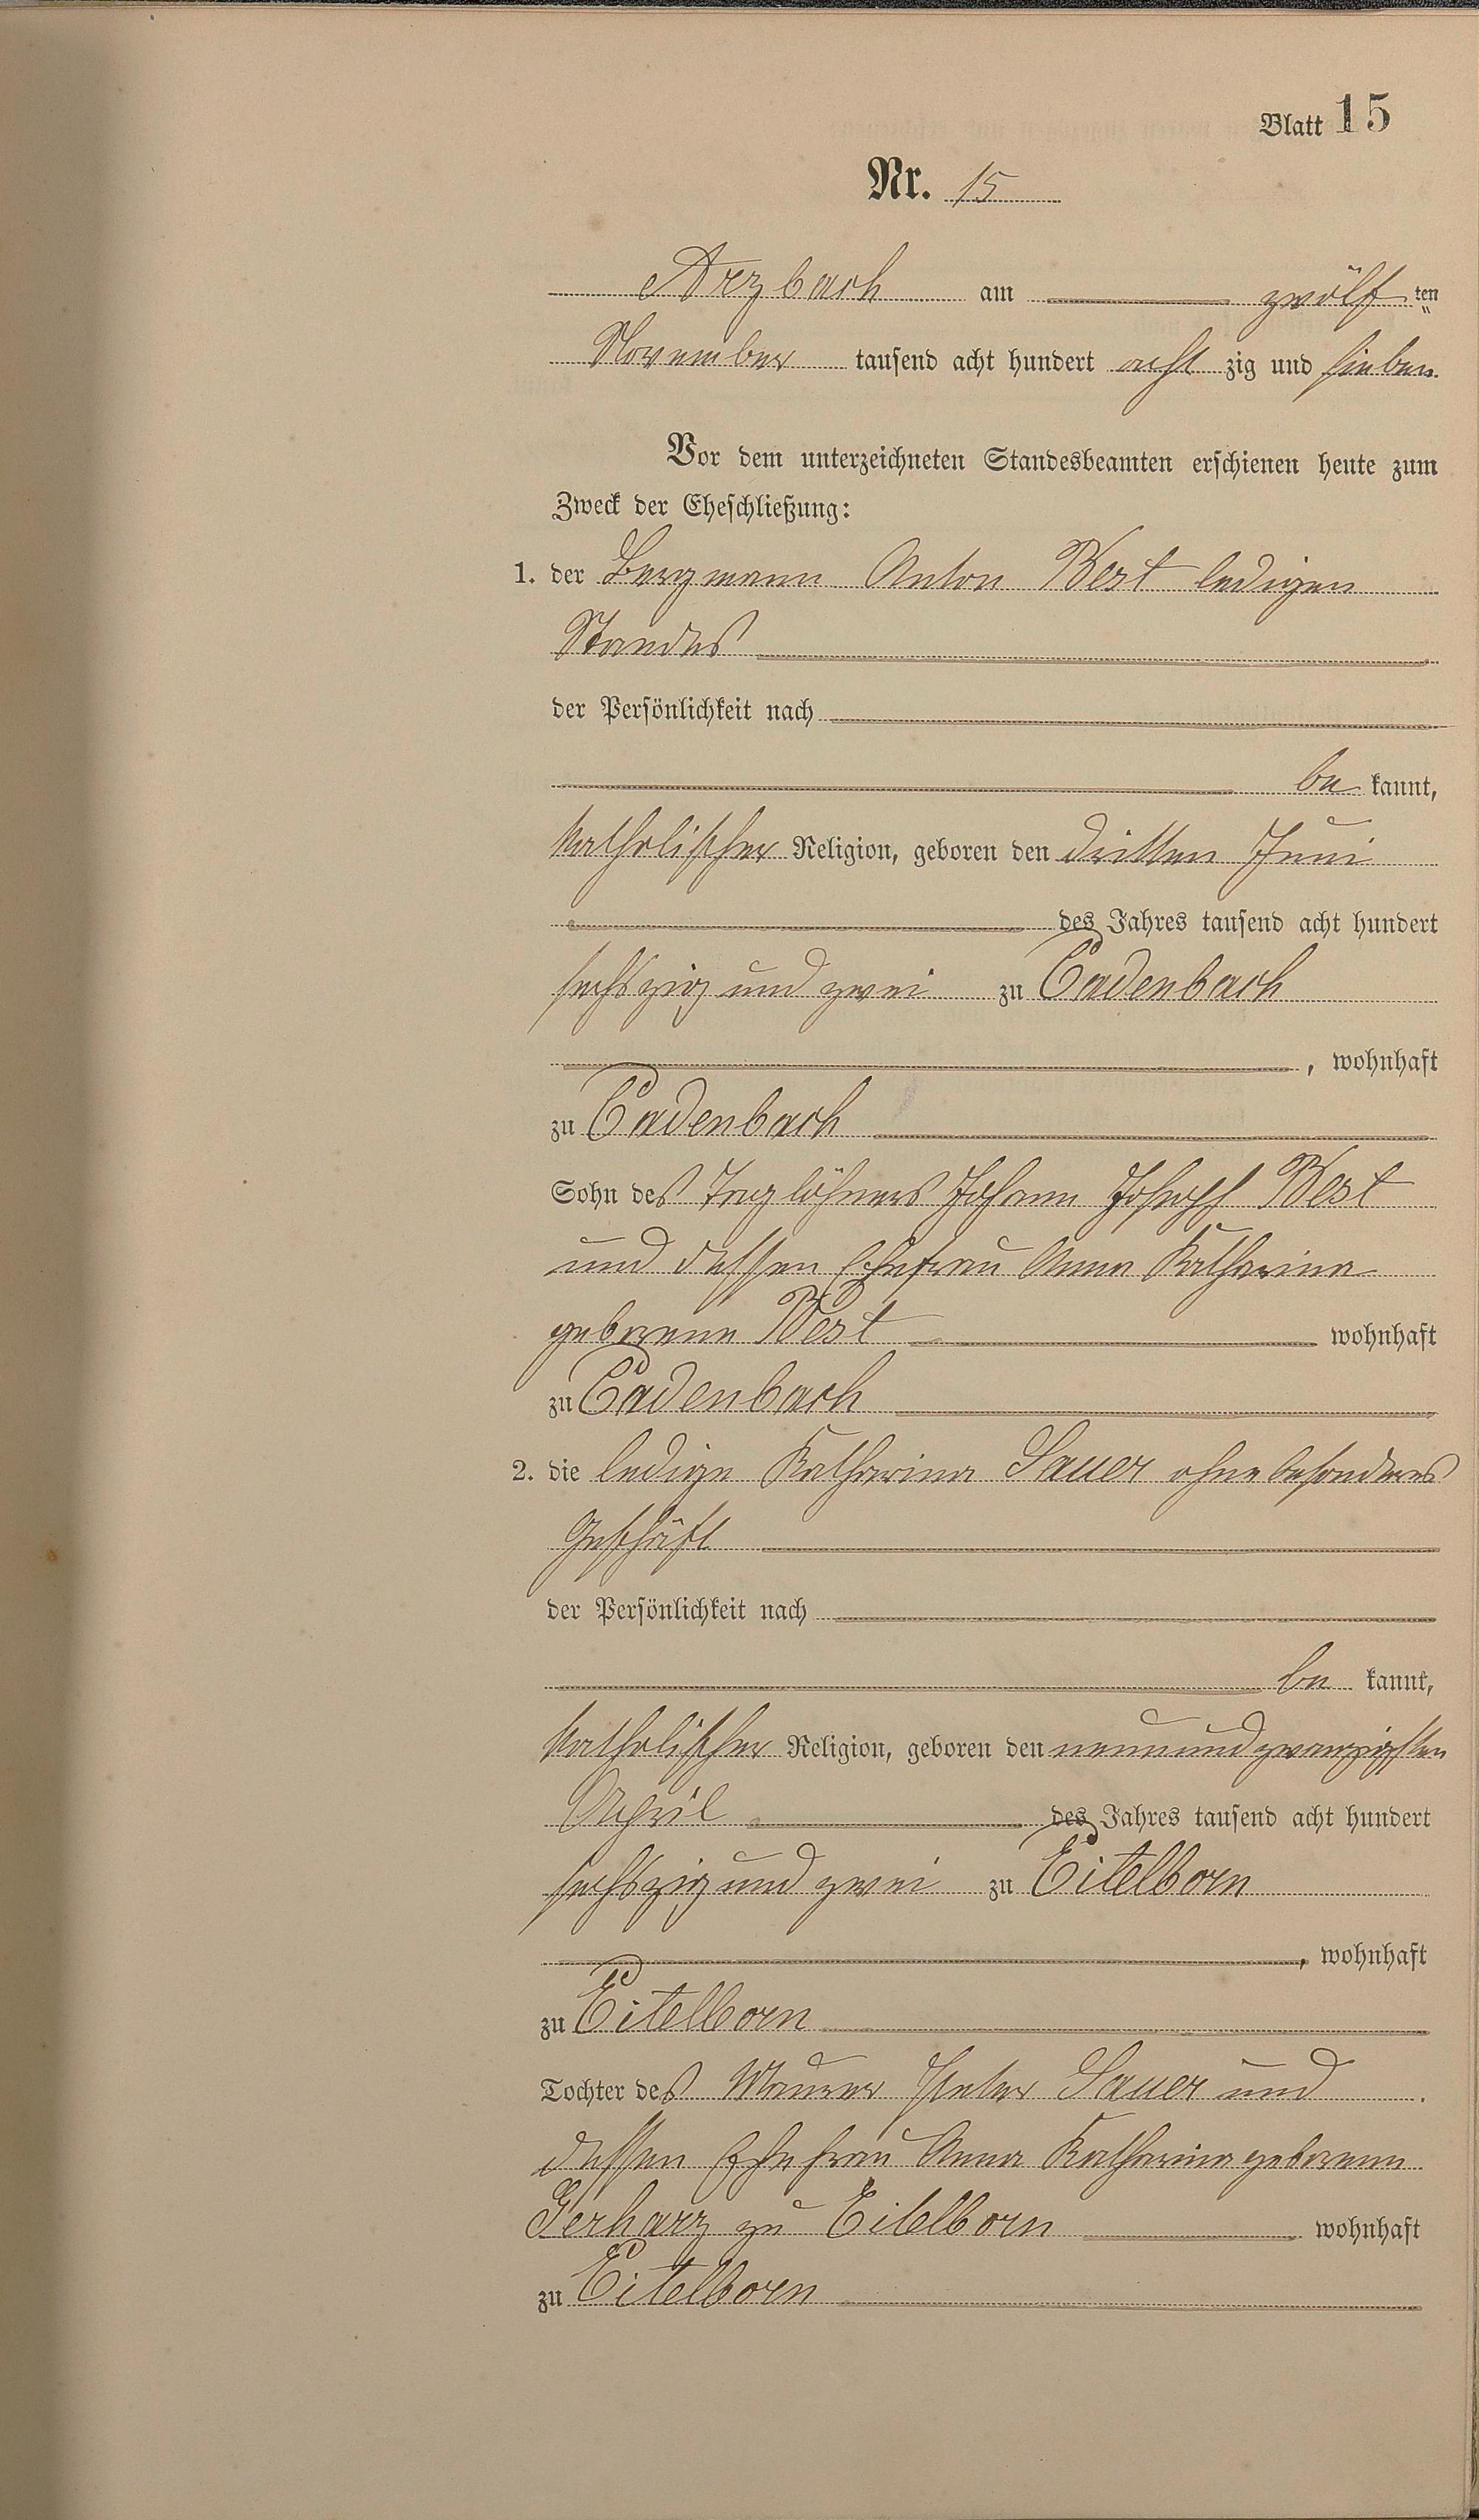 Blatt 15
Nr. 15
Arzbach am zwölf ten
November tausend acht hundert acht zig und sieben
Vor dem unterzeichneten Standesbeamten erschienen heute zum
Zweck der Eheschließung:
1. der Bergmann Anton Best ledigen
Standes
der Persönlichkeit nach
be kannt,
katholischer Religion, geboren den dritten Juni
des Jahres tausend acht hundert
sechszig und zwei zu Cadenbach
, wohnhaft
zu Cadenbach
Sohn des Taglöhners Johann Joseph Best
und dessen Ehefrau Anna Katharina
geborene Best wohnhaft
zu Cadenbach
2. die ledige Katharina Sauer ohne besonderes
Geschäft
der Persönlichkeit nach
be kannt,
katholischer Religion, geboren den neunundzwanzigsten
April des Jahres tausend acht hundert
sechszig und zwei zu Eitelborn
, wohnhaft
zu Eitelborn
Tochter des Maurer Peter Sauer und
dessen Ehefrau Anna Katharina geborene
Gerharz zu Eitelborn wohnhaft
zu Eitelborn